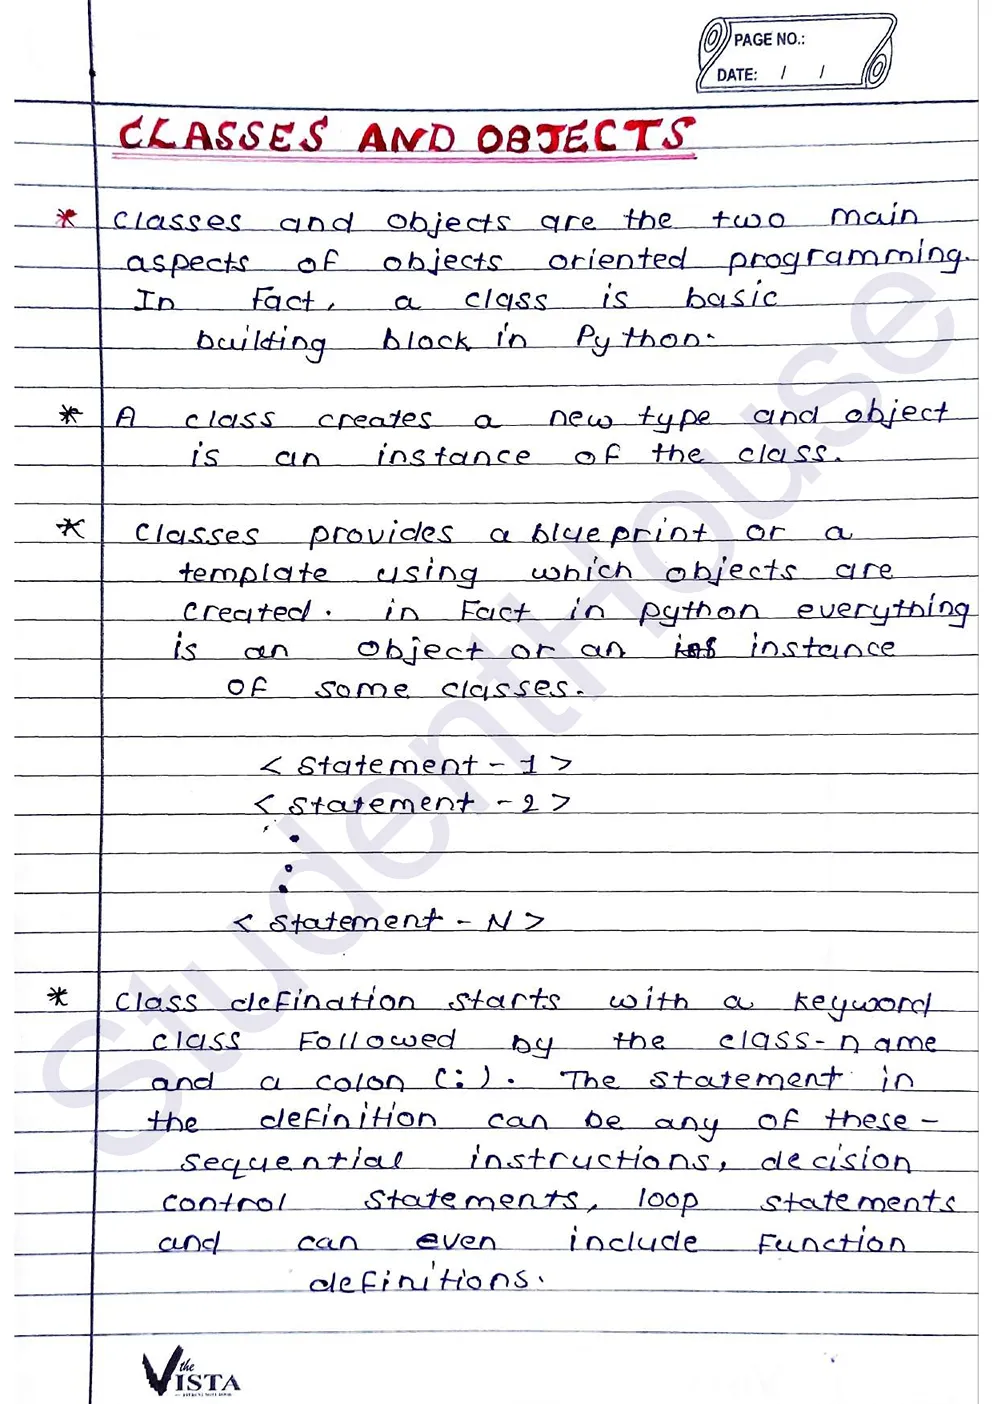 PAGE NO.:
DATE: / /
CLASSES AND OBJECTS
* Classes and objects are the two main
aspects of objects oriented programming.
In Fact, a class is basic
building block in Python.
* A class creates a new type and object
is an instance of the class.
* Classes provides a blueprint or a
template using which objects are
created. in Fact in python everything
is an object or an instance
of some classes.
< Statement - 1 >
< Statement - 2 >
.
.
.
< Statement - N >
* Class defination starts with a keyword
class Followed by the class-name
and a colon (:). The statement in
the definition can be any of these -
sequential instructions, decision
control statements, loop statements
and can even include Function
definitions.
the
VISTA
StudentHouse